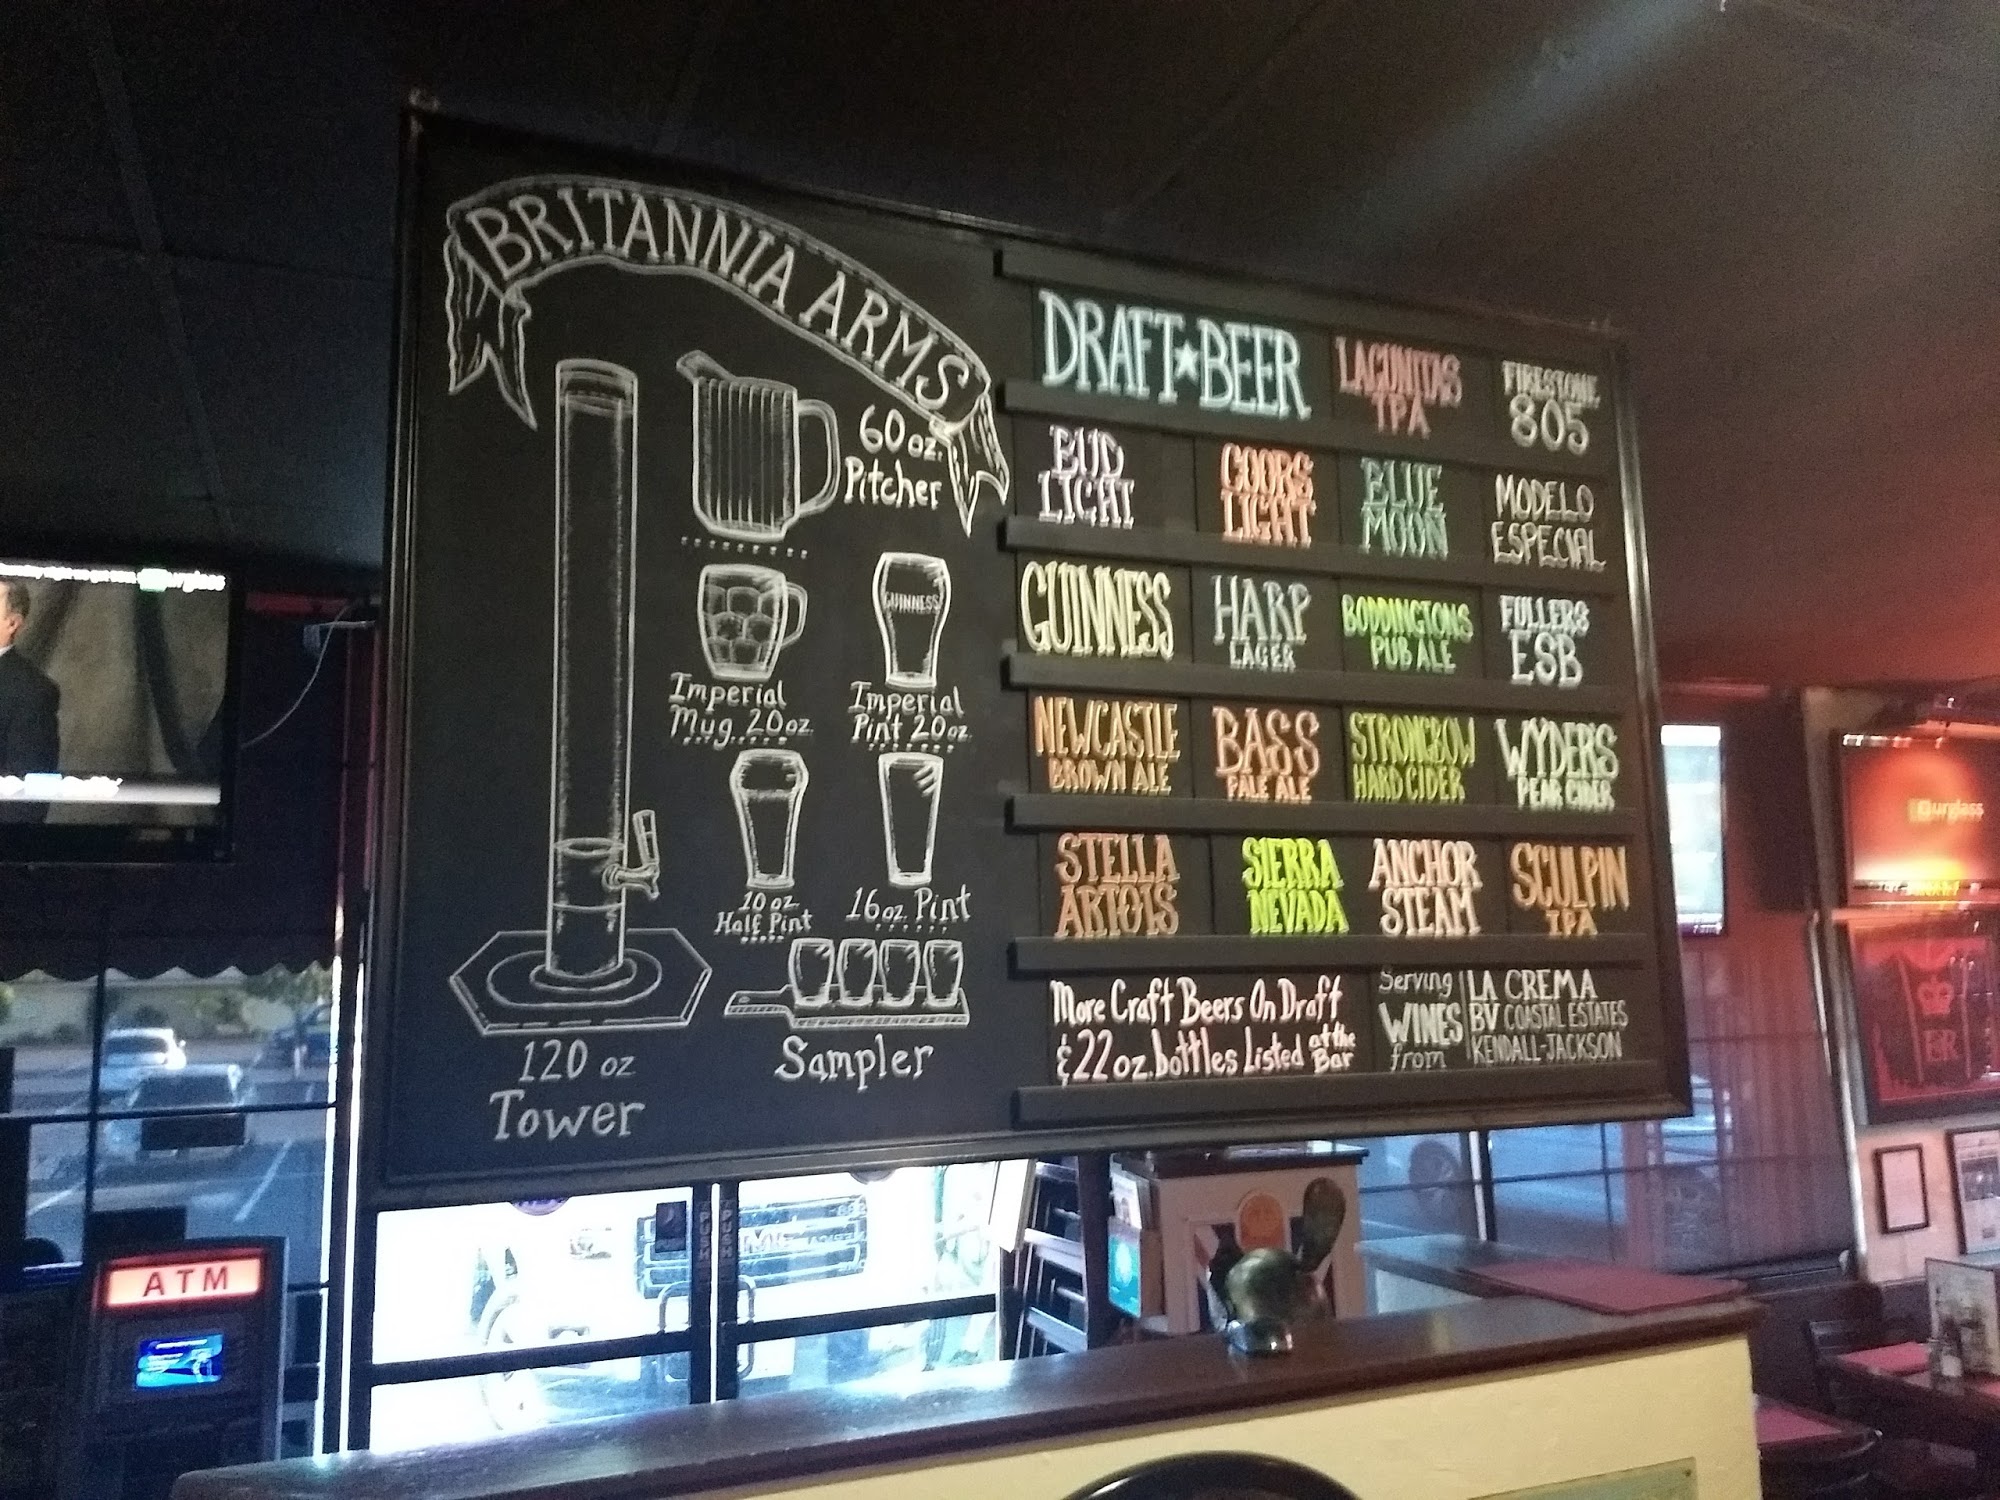 BRITANNIA ARMS
60 oz.
Pitcher
GUINNESS
Imperial
Mug 20oz.
Imperial
Pint 20oz.
10 oz
Half Pint
16oz. Pint
120 oz
Tower
Sampler
DRAFT★BEER
LAGUNITAS
IPA
FIRESTONE
805
BUD
LIGHT
COORS
LIGHT
BLUE
MOON
MODELO
ESPECIAL
GUINNESS
HARP
LAGER
BODDINGTONS
PUB ALE
FULLERS
ESB
NEWCASTLE
BROWN ALE
BASS
PALE ALE
STRONGBOW
HARD CIDER
WYDER'S
PEAR CIDER
STELLA
ARTOIS
SIERRA
NEVADA
ANCHOR
STEAM
SCULPIN
IPA
More Craft Beers On Draft
& 22 oz. bottles Listed at the Bar
Serving
WINES
from
LA CREMA
BV COASTAL ESTATES
KENDALL-JACKSON
ATM
PUSH
PUSH
ourglass
E R